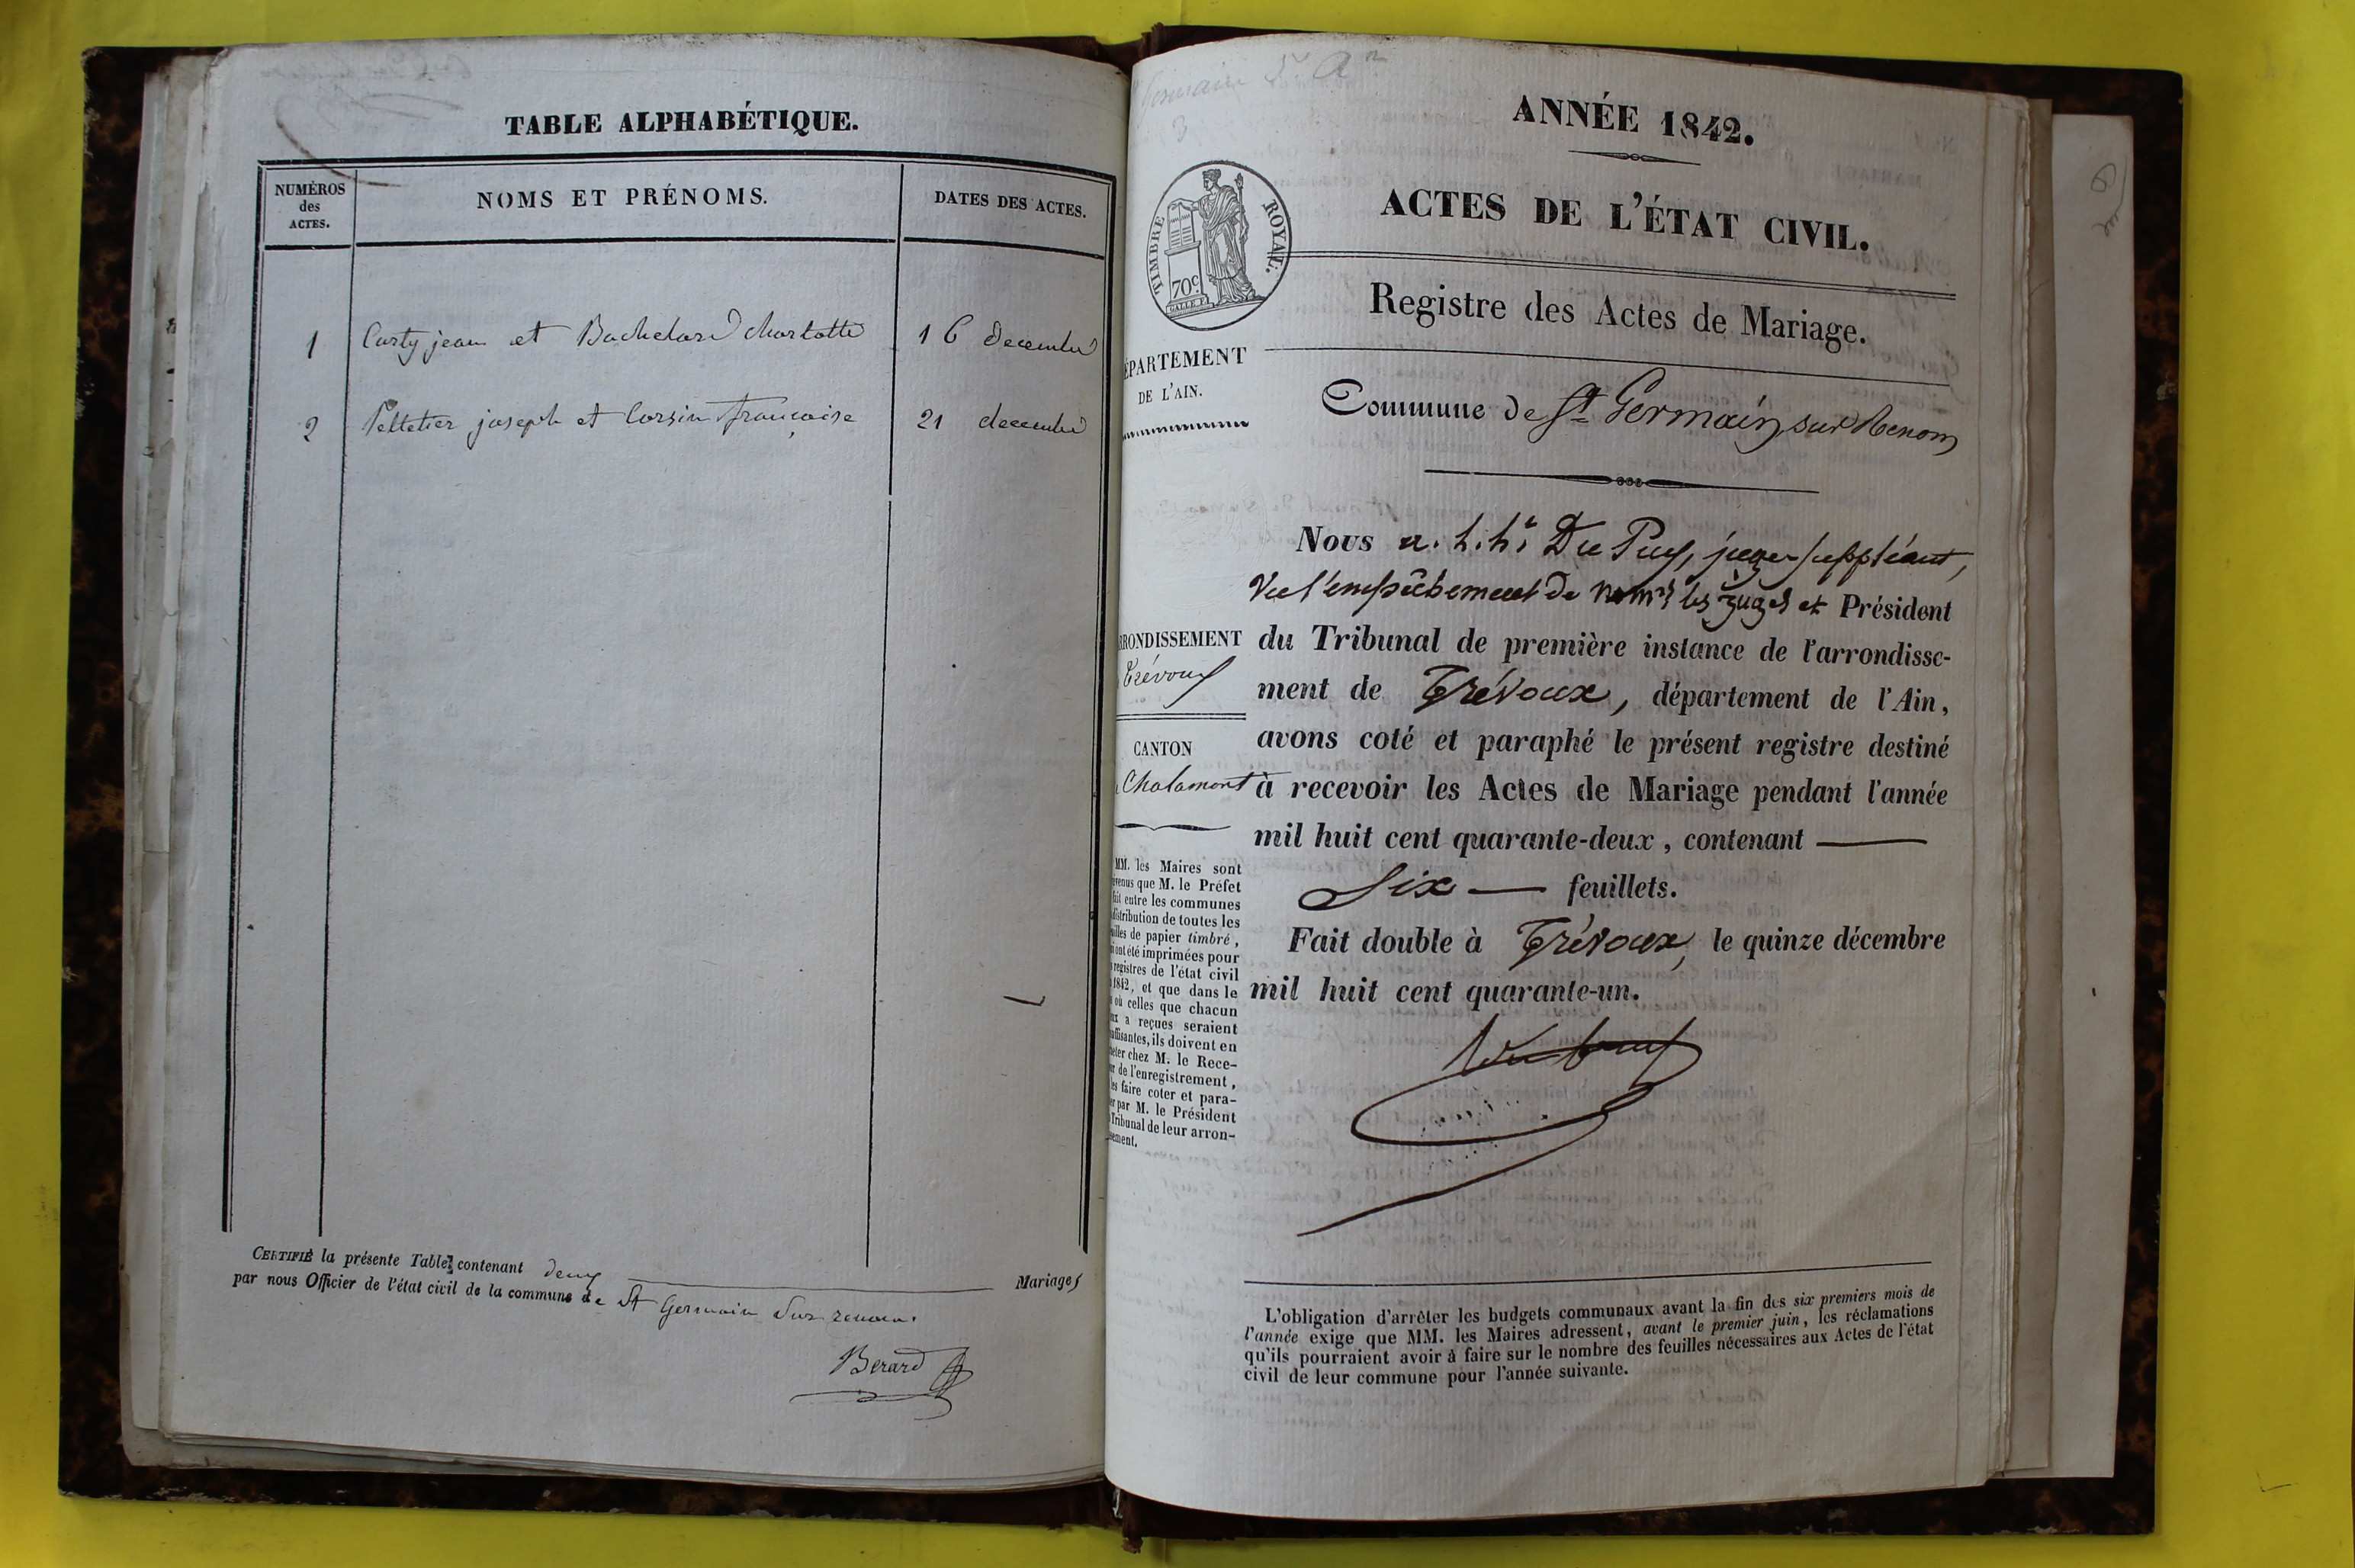 TABLE ALPHABÉTIQUE.
NUMÉROS
des
ACTES.
NOMS ET PRÉNOMS.
DATES DES ACTES.
1 Curty jean et Bachelard charlotte 16 decembre
2 Pelletier joseph et Corsin françoise 21 decembre
CERTIFIÉ la présente Table contenant deux Mariages
par nous Officier de l'état civil de la commune de St Germain Sur renom.
Berard
ANNÉE 1842.
ACTES DE L'ÉTAT CIVIL.
TIMBRE ROYAL.
70c
Registre des Actes de Mariage.
ÉPARTEMENT
DE L'AIN.
Commune de St Germain sur Renom
Nous Du Puy, juge suppléant,
Vu l'empêchement de les juges et Président
RRONDISSEMENT
Trévoux
du Tribunal de première instance de l'arrondisse-
ment de Trévoux, département de l'Ain,
CANTON
Chalamont
avons coté et paraphé le présent registre destiné
à recevoir les Actes de Mariage pendant l'année
mil huit cent quarante-deux, contenant
Six feuillets.
Fait double à Trévoux, le quinze décembre
mil huit cent quarante-un.
MM. les Maires sont
venus que M. le Préfet
fait entre les communes
distribution de toutes les
uilles de papier timbré,
i ont été imprimées pour
registres de l'état civil
1842, et que dans le
où celles que chacun
ux a reçues seraient
uffisantes, ils doivent en
heter chez M. le Rece-
ur de l'enregistrement,
les faire coter et para-
er par M. le Président
Tribunal de leur arron-
sement.
L'obligation d'arrêter les budgets communaux avant la fin des six premiers mois de
l'année exige que MM. les Maires adressent, avant le premier juin, les réclamations
qu'ils pourraient avoir à faire sur le nombre des feuilles nécessaires aux Actes de l'état
civil de leur commune pour l'année suivante.